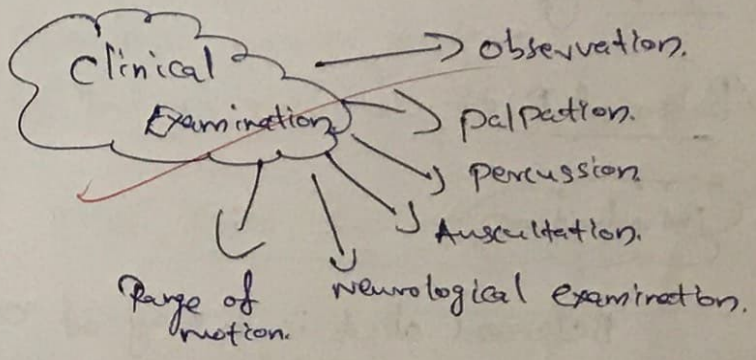 Clinical
Examination
observation.
palpation.
percussion.
Auscultation.
Neurological examination.
Range of
motion.